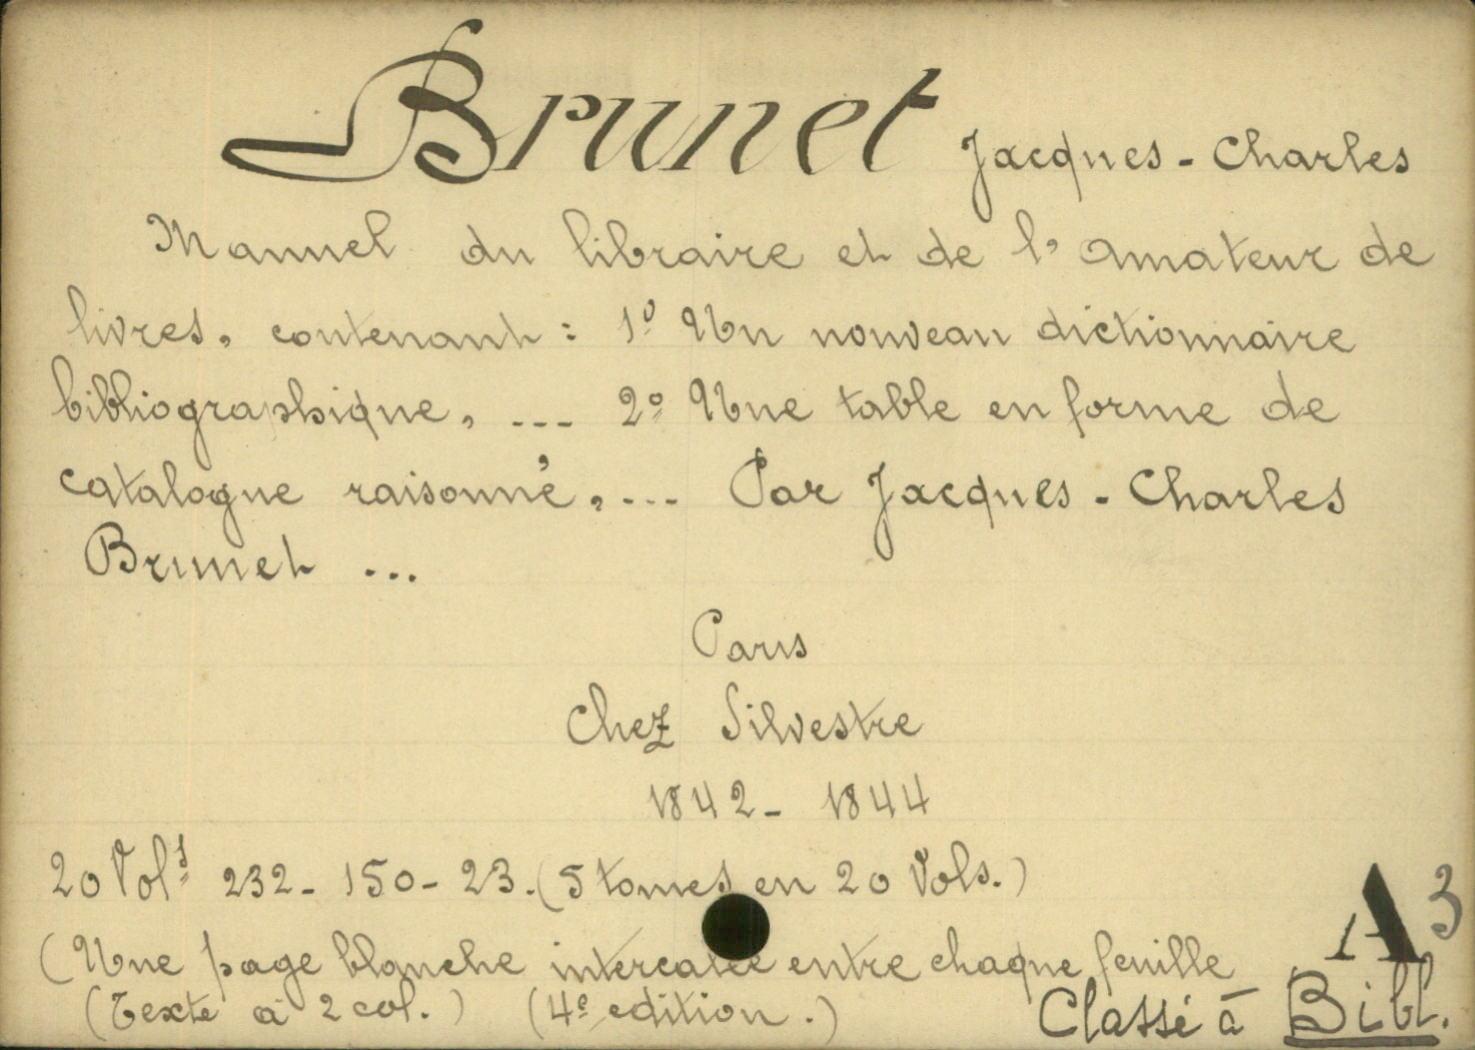 Brunet Jacques-Charles
Manuel du libraire et de l'amateur de
livres, contenant : 1º Un nouveau dictionnaire
bibliographique, --- 2º Une table en forme de
catalogue raisonné, --- Par Jacques-Charles
Brunet ...
Paris
Chez Silvestre
1842- 1844
20 Vols 232- 150- 23. (5 tomes en 20 Vols.)
A3
(Une page blanche intercalée entre chaque feuille
(Texte à 2 col.) (4e edition.) Classé à Bibl.